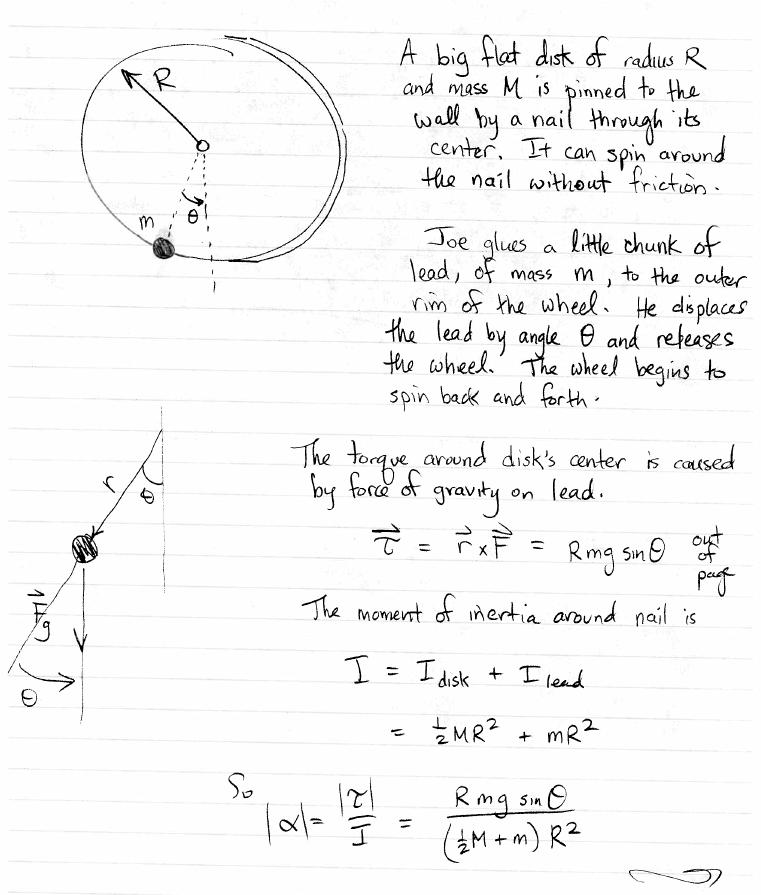 R
m
θ
A big flat disk of radius R
and mass M is pinned to the
wall by a nail through its
center. It can spin around
the nail without friction.
Joe glues a little chunk of
lead, of mass m, to the outer
rim of the wheel. He displaces
the lead by angle θ and releases
the wheel. The wheel begins to
spin back and forth.
r
θ
F⃗g
θ
The torque around disk's center is caused
by force of gravity on lead.
τ⃗ = r⃗ x F⃗ = Rmg sinθ out of page
The moment of inertia around nail is
I = I disk + I lead
= ½MR² + mR²
So
|α| = |τ| / I = R mg sinθ / (½M + m) R²